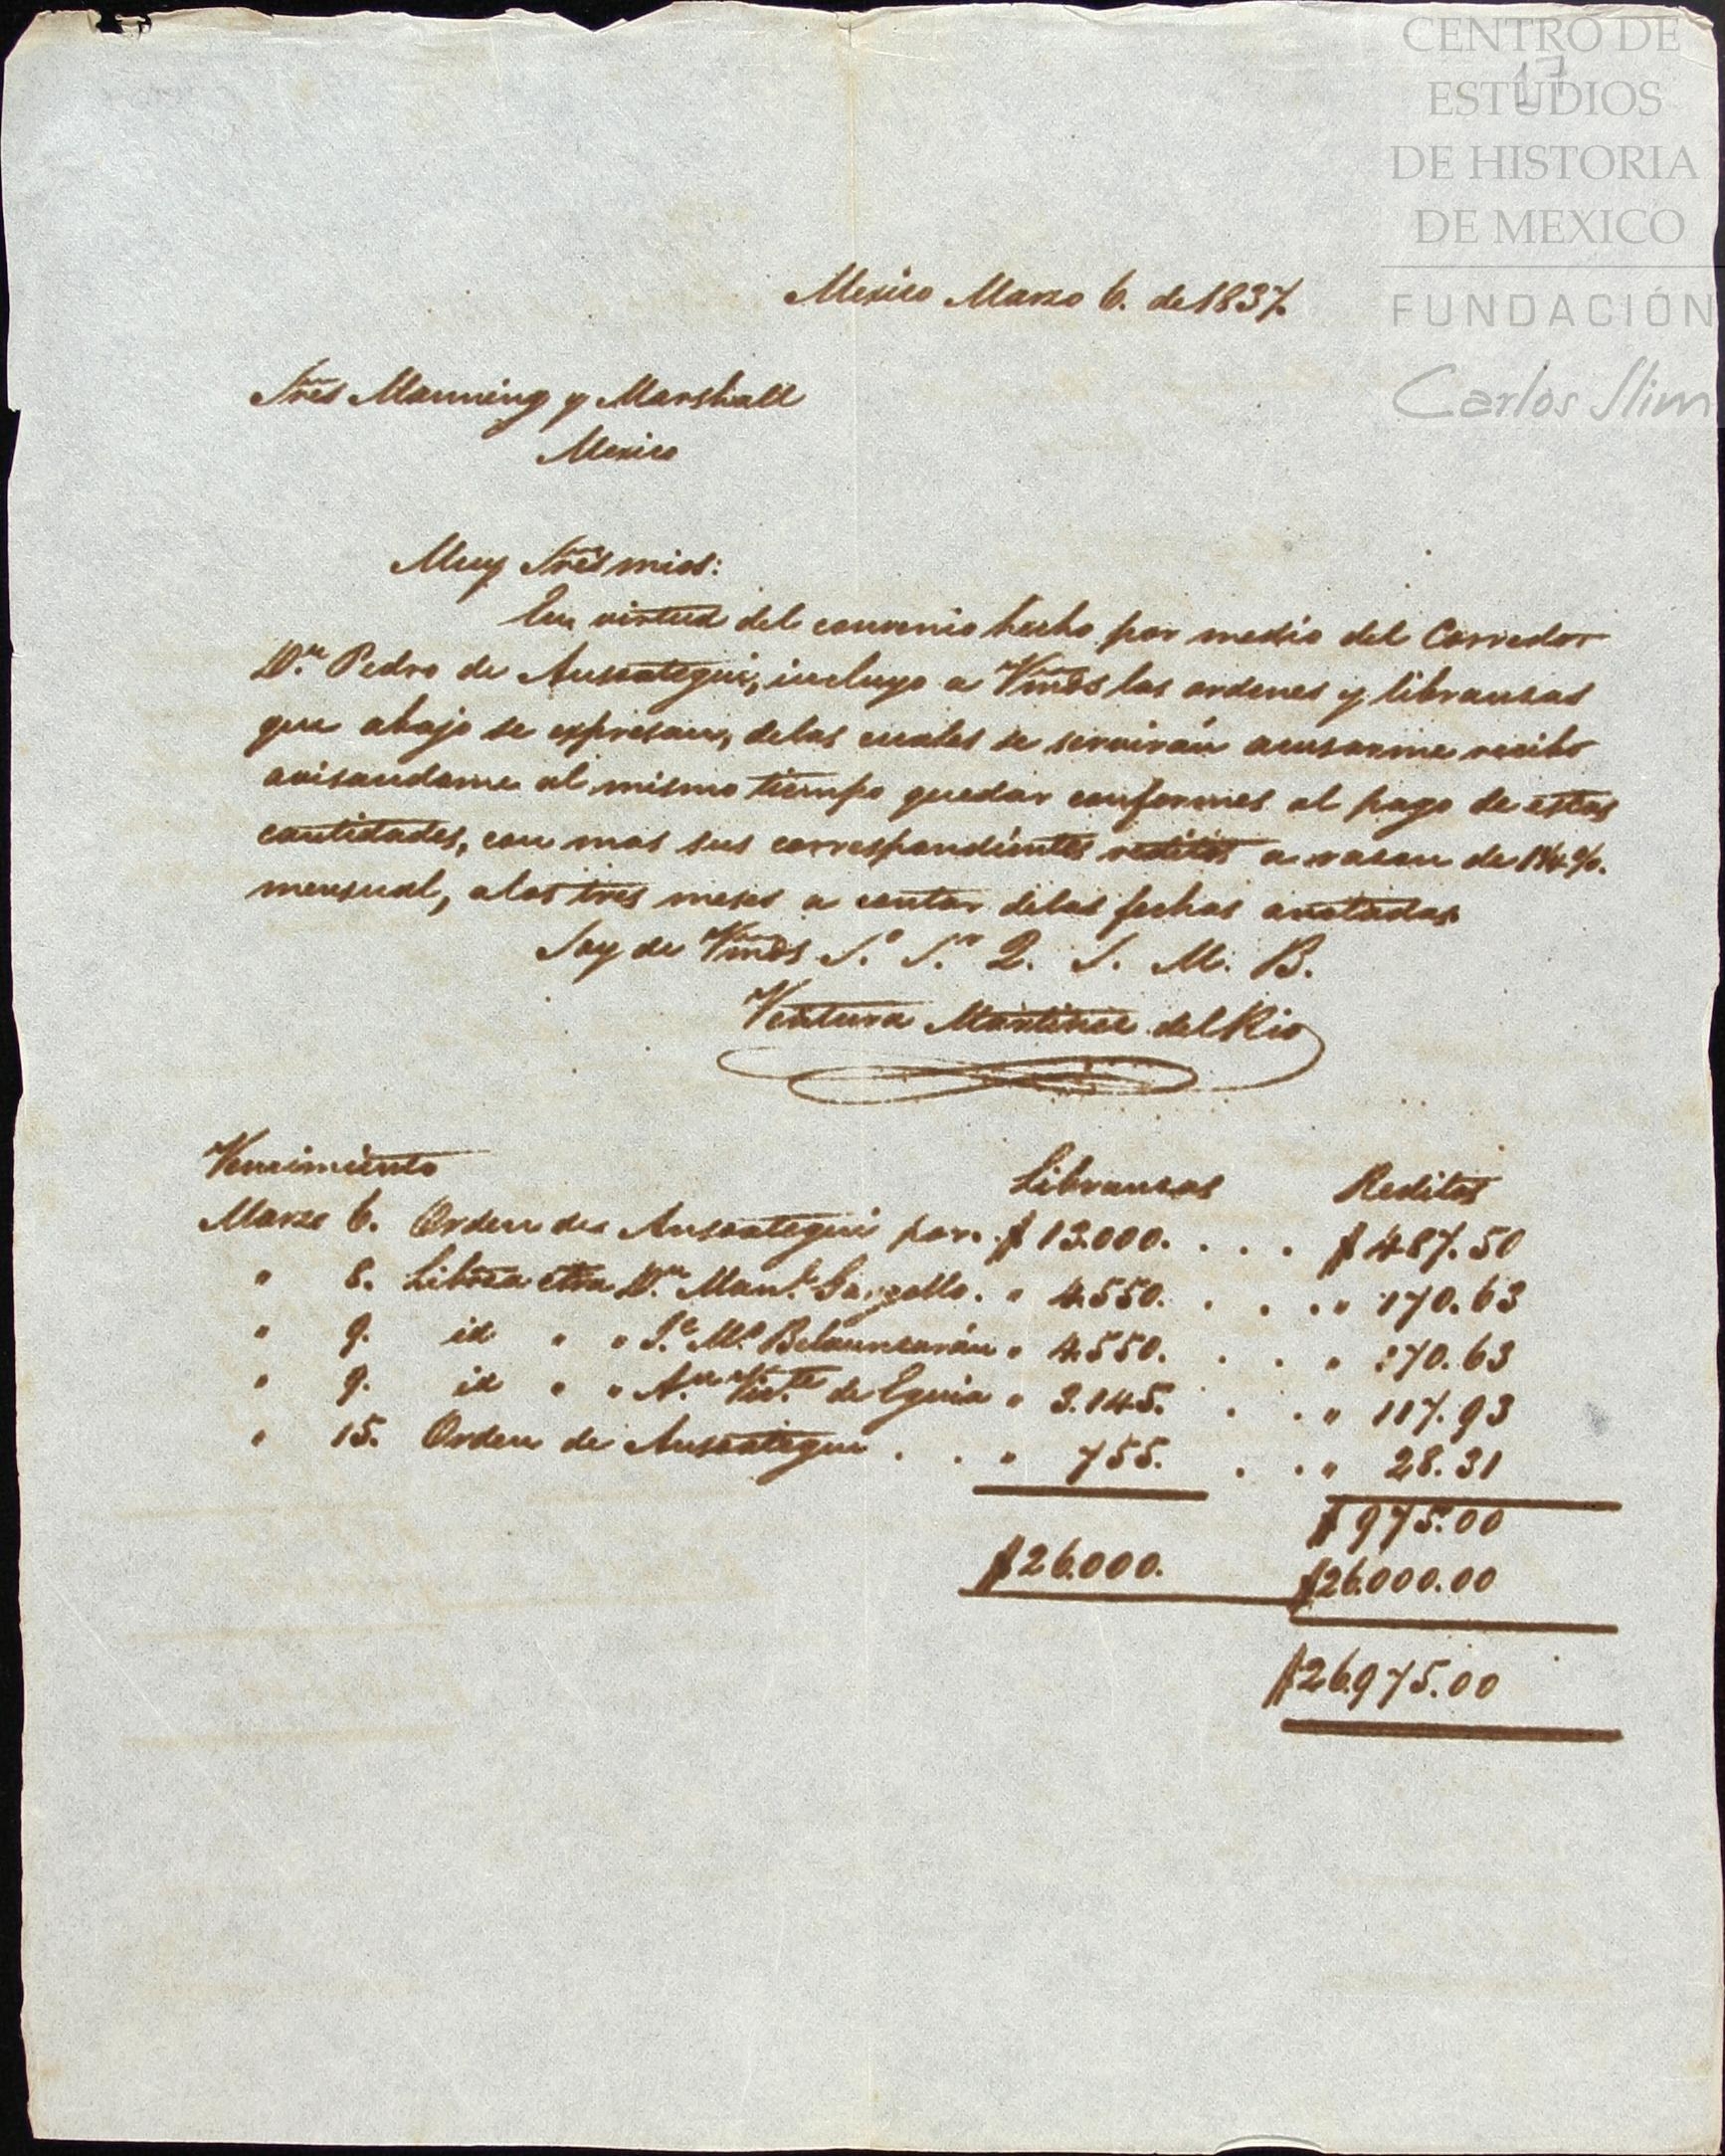 CENTRO DE
ESTUDIOS
DE HISTORIA
DE MEXICO
FUNDACIÓN
Carlos Slim
17
Mexico Marzo 6. de 1837.
Sres Manning y Marshall
Mexico
Muy Sres mios:
En virtud del convenio hecho por medio del Corredor
Dn. Pedro de Ansoategui, incluyo a Vmds las ordenes y libranzas
que abajo se expresan, delas cuales se servirán acusarme recibo
avisandome al mismo tiempo quedar conformes al pago de estas
cantidades, con mas sus correspondientes reditos a razon de 1¼%.
mensual, a los tres meses a contar delas fechas anotadas.
Soy de Vmds S. S. Q. S. M. B.
Ventura Martinez del Rio
Vencimiento Libranzas Reditos
Marzo 6. Orden de Ansoategui por. $ 13.000. . . . $ 487.50
" 8. Libranza Dn. Manl. . " 4.550. . . . " 170.63
" 9. id " " Je. Ma. Belaunzarán " 4.550. . . " 170.63
" 9. id " " An. Vite. de Eguia " 3.145. . . " 117.93
" 15. Orden de Ansoategui . . " 755. . . " 28.31
$ 975.00
$26.000. $26.000.00
$26.975.00